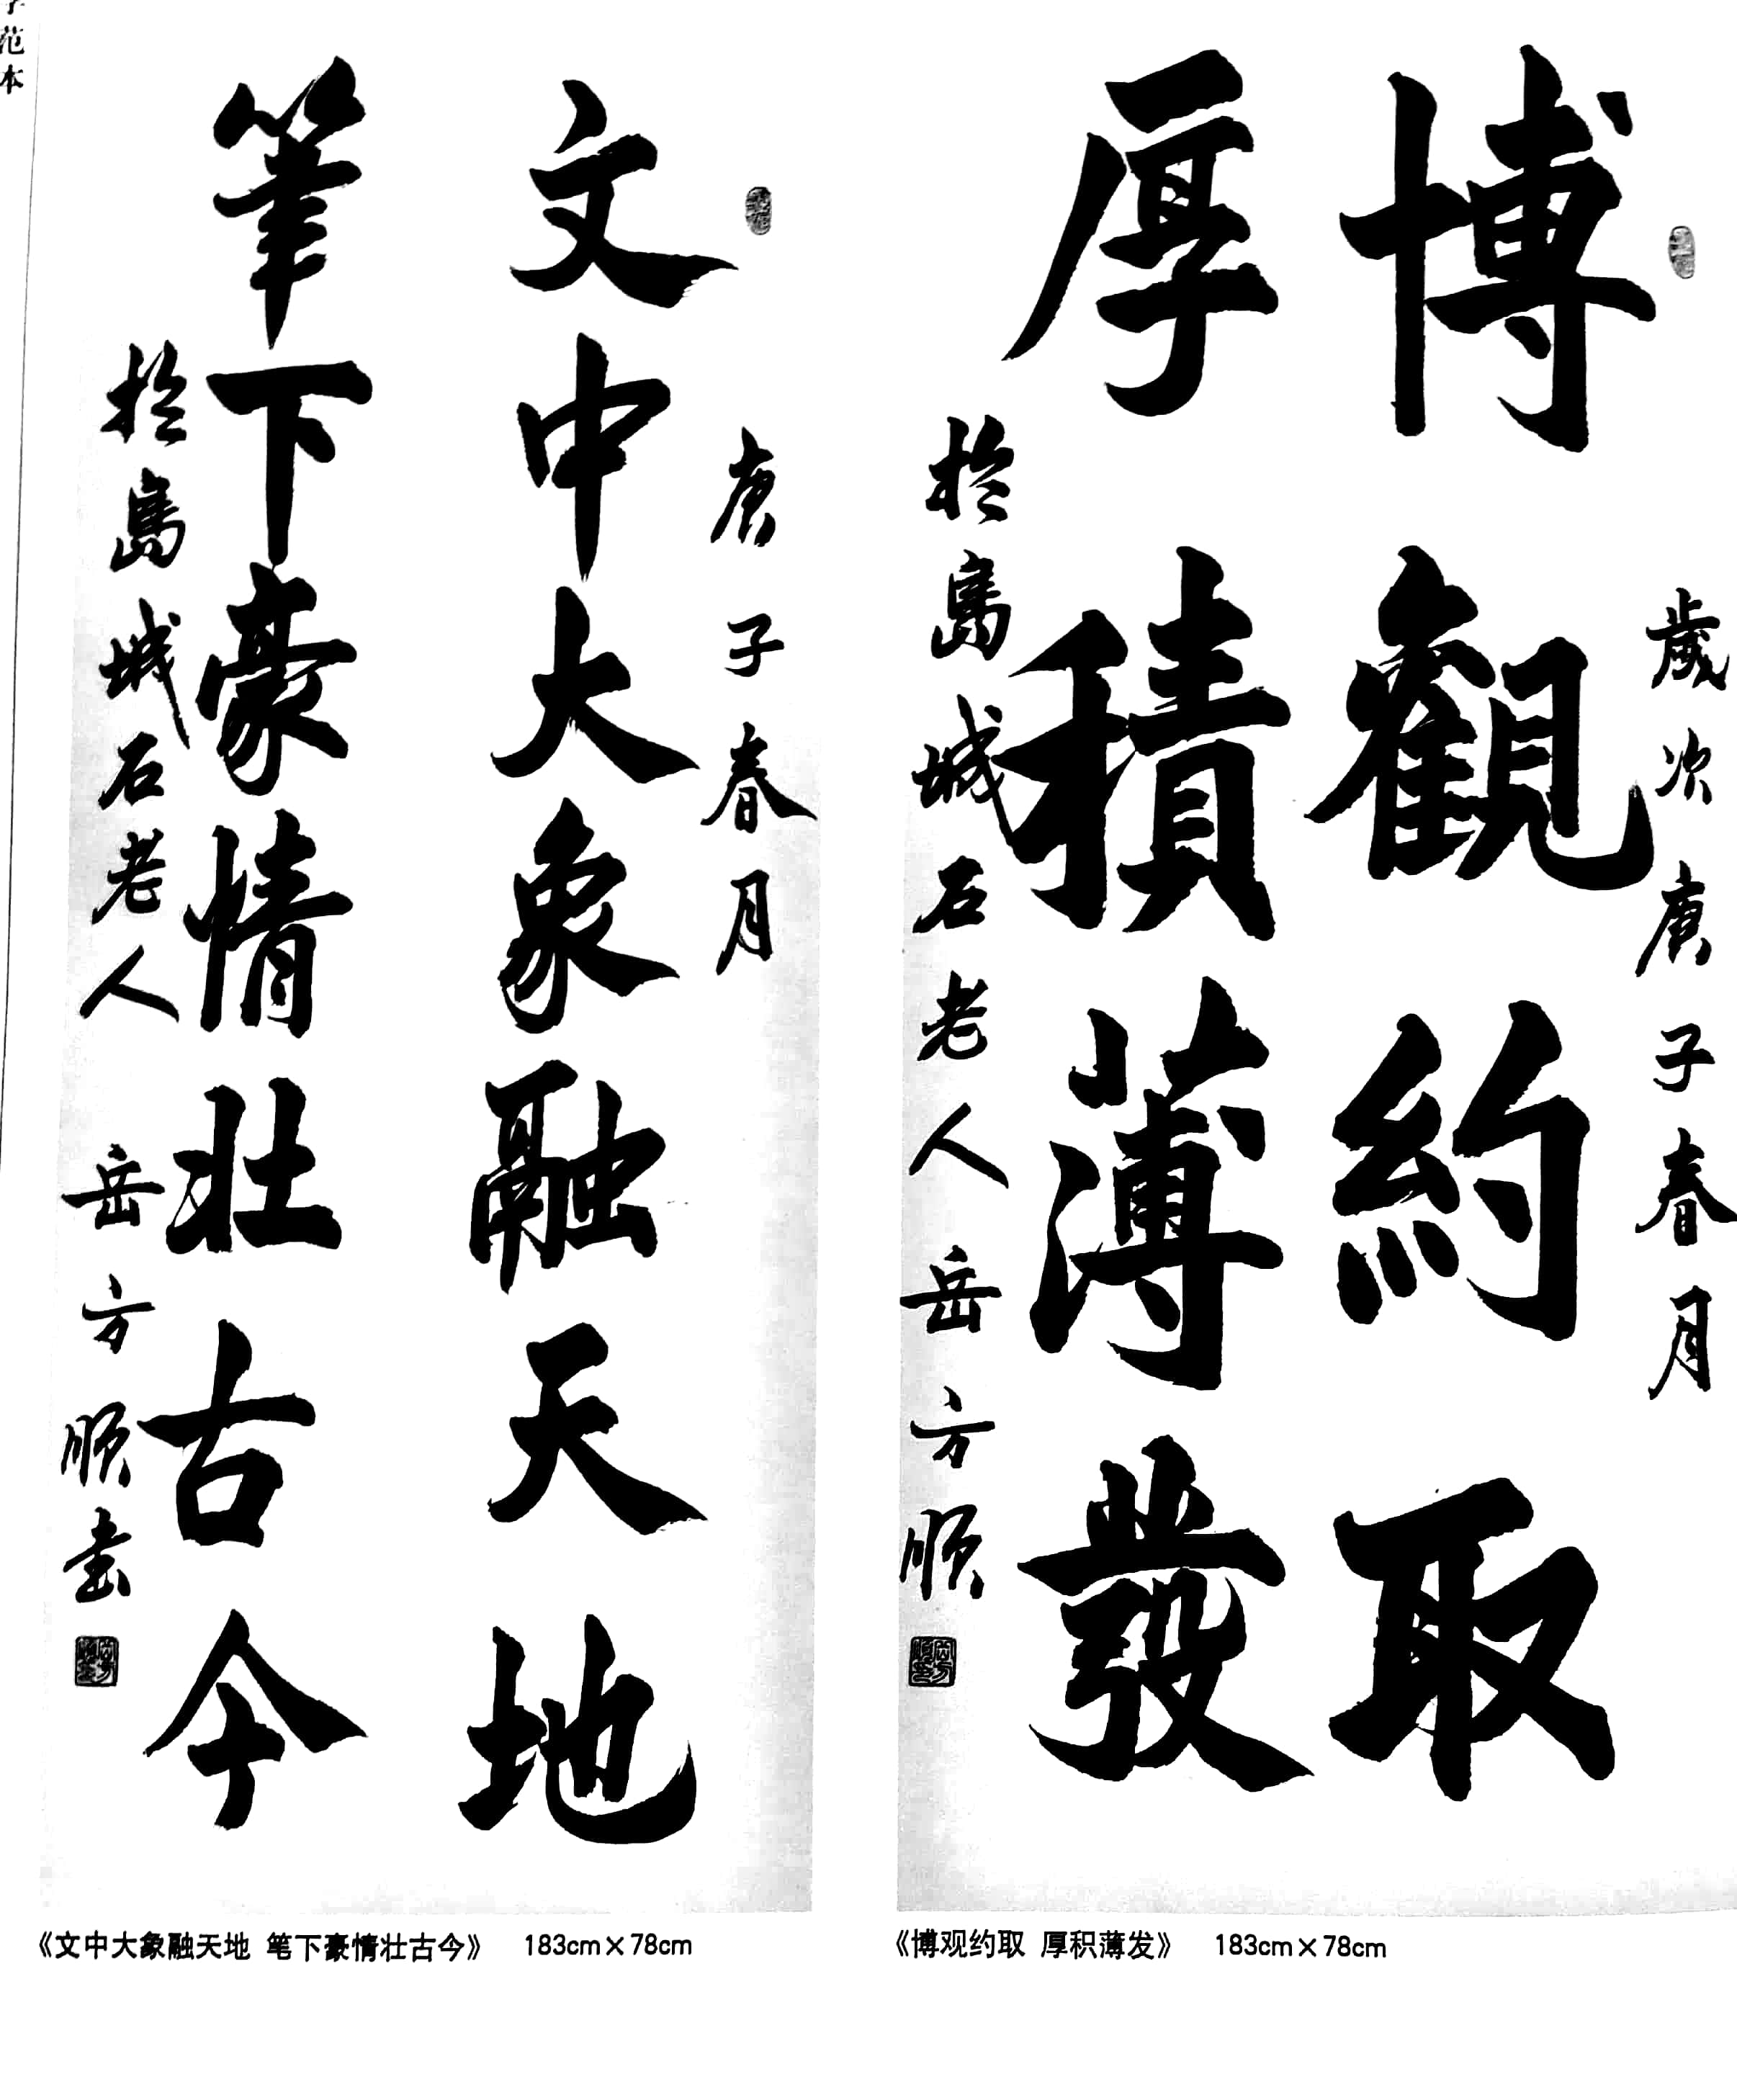 范本
博觀約取
厚積薄發
歲次庚子春月
於島城石老人岳方順
庚子春月
文中大象融天地
筆下豪情壯古今
於島城石老人 岳方順書
《博观约取 厚积薄发》 183cm×78cm
《文中大象融天地 笔下豪情壮古今》 183cm×78cm